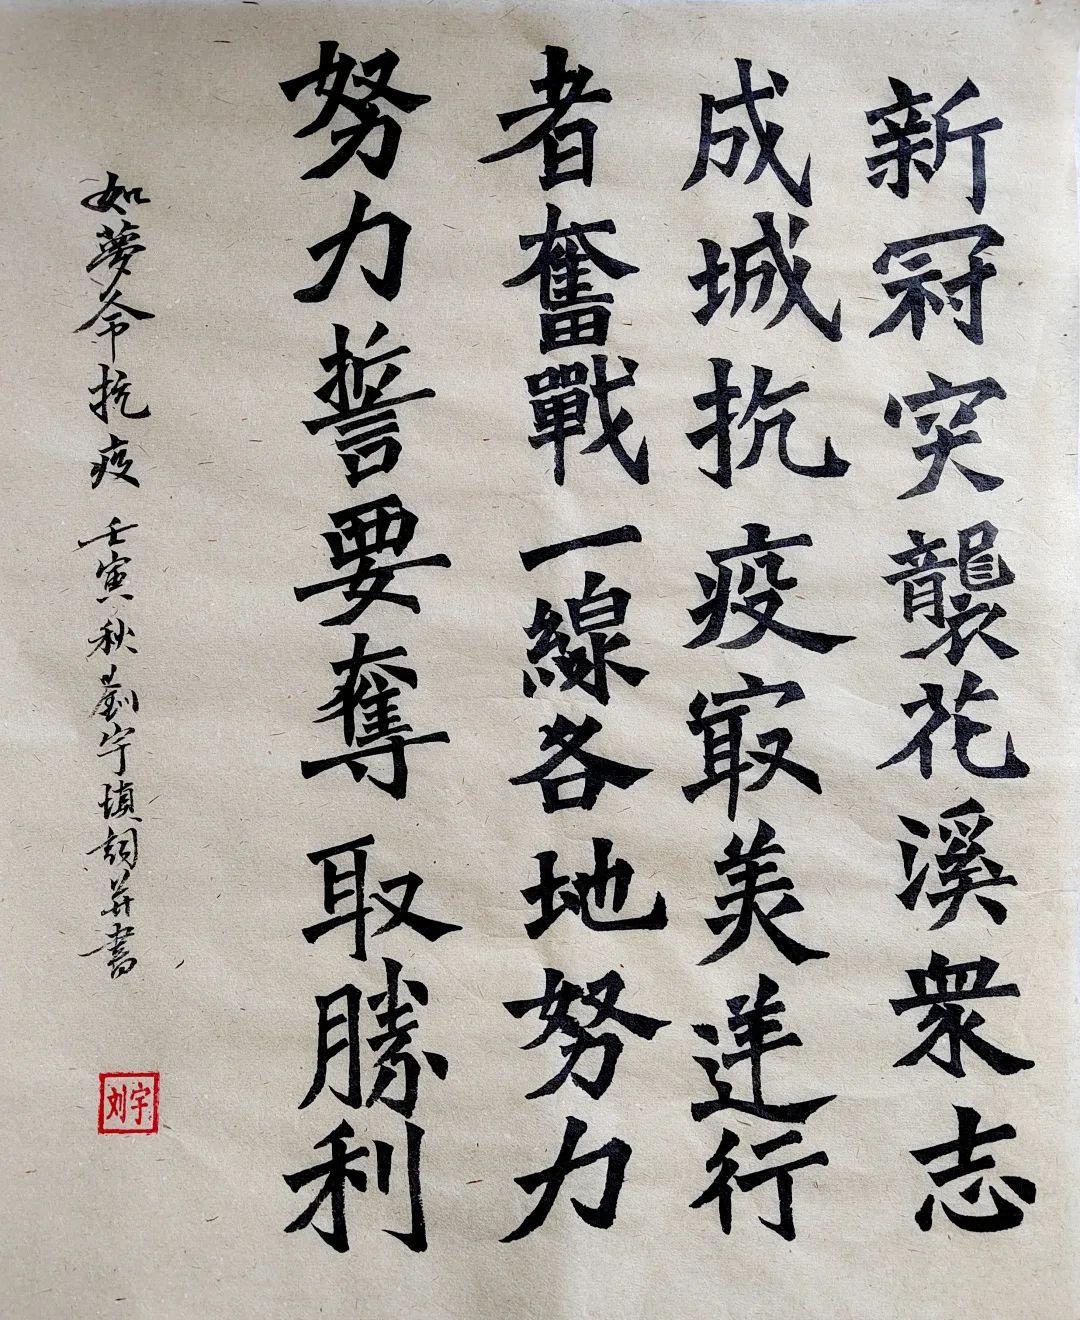 新冠突襲花溪衆志
成城抗疫㝡美逆行
者奮戰一線各地努力
努力誓要奪取勝利
如夢令抗疫 壬寅秋劉宇填詞并書
刘宇